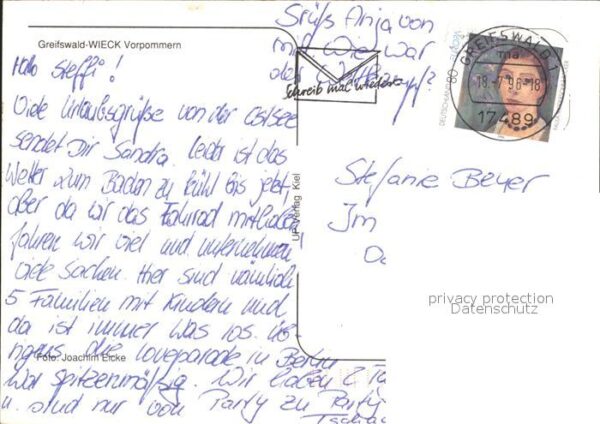 Greifswald-WIECK Vorpommern
Hallo Steffi!
Viele Urlaubsgrüße von der Ostsee
sendet Dir Sandra. Leider ist das
Wetter zum Baden zu kühl bis jetzt,
aber da wir das Fahrrad mithaben
fahren wir viel und unternehmen
viele Sachen. Hier sind nämlich
5 Familien mit Kindern und
da ist immer was los. Üb-
rigens die loveparade in Berlin
war spitzenmäßig. Wir haben 2
u. sind nur von Party zu Party
Foto: Joachim Eicke
Grüß Anja von
mir. Wie war
der
Schreib mal wieder
UP Verlag Kiel
DEUTSCHLAND
EUROPA
GREIFSWALD 1
18.-7.96-18
17489
Stefanie Beyer
Im
privacy protection
Datenschutz